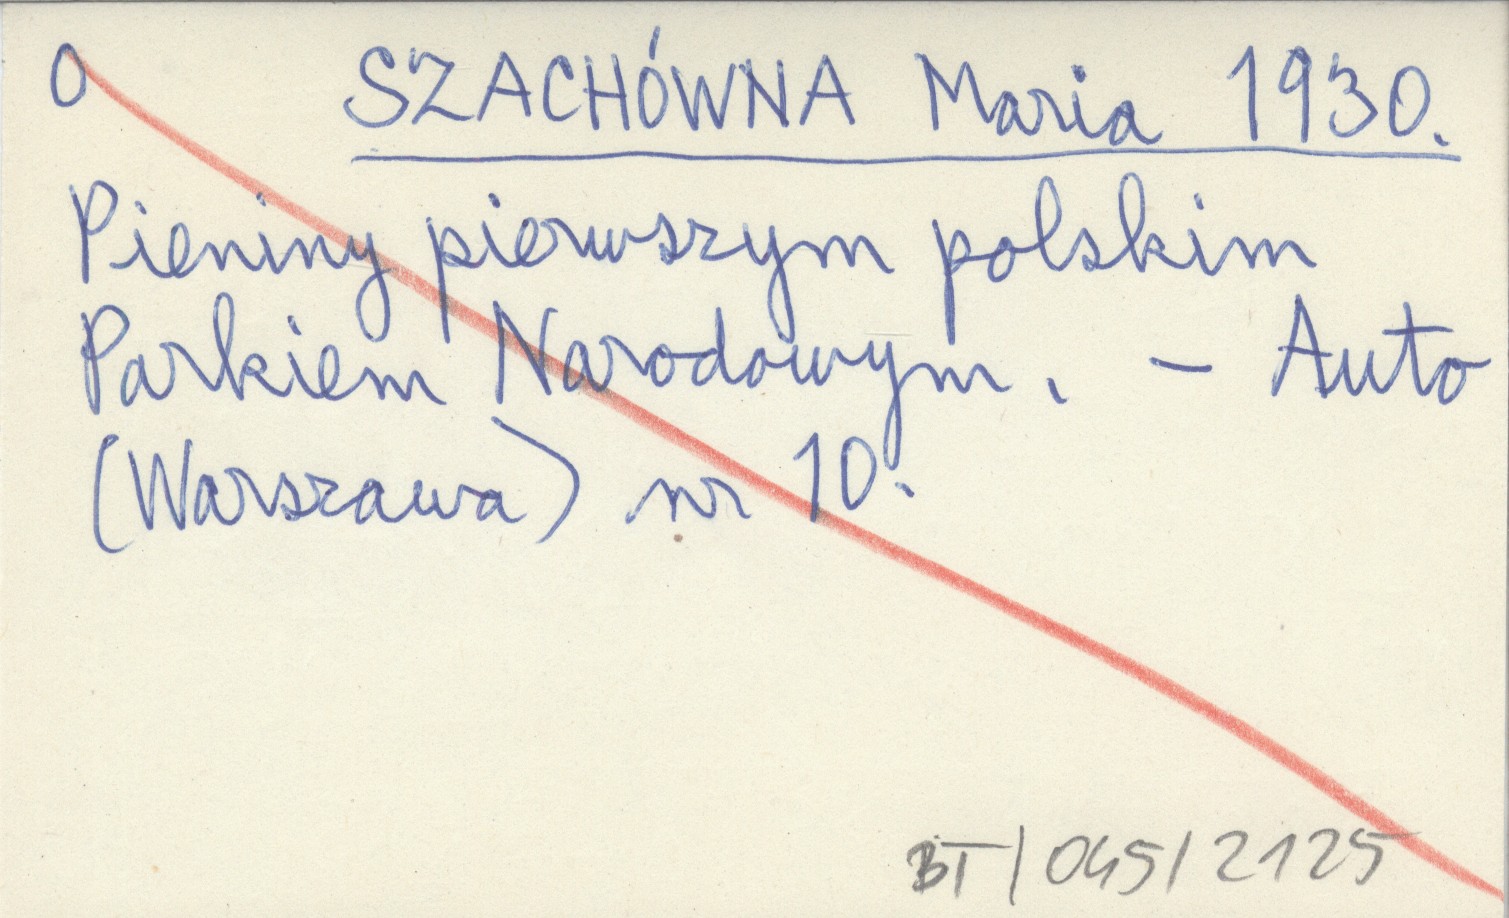 O SZACHÓWNA Maria 1930.
Pieniny pierwszym polskim
Parkiem Narodowym. – Auto
(Warszawa) nr 10.
BT/045/2125